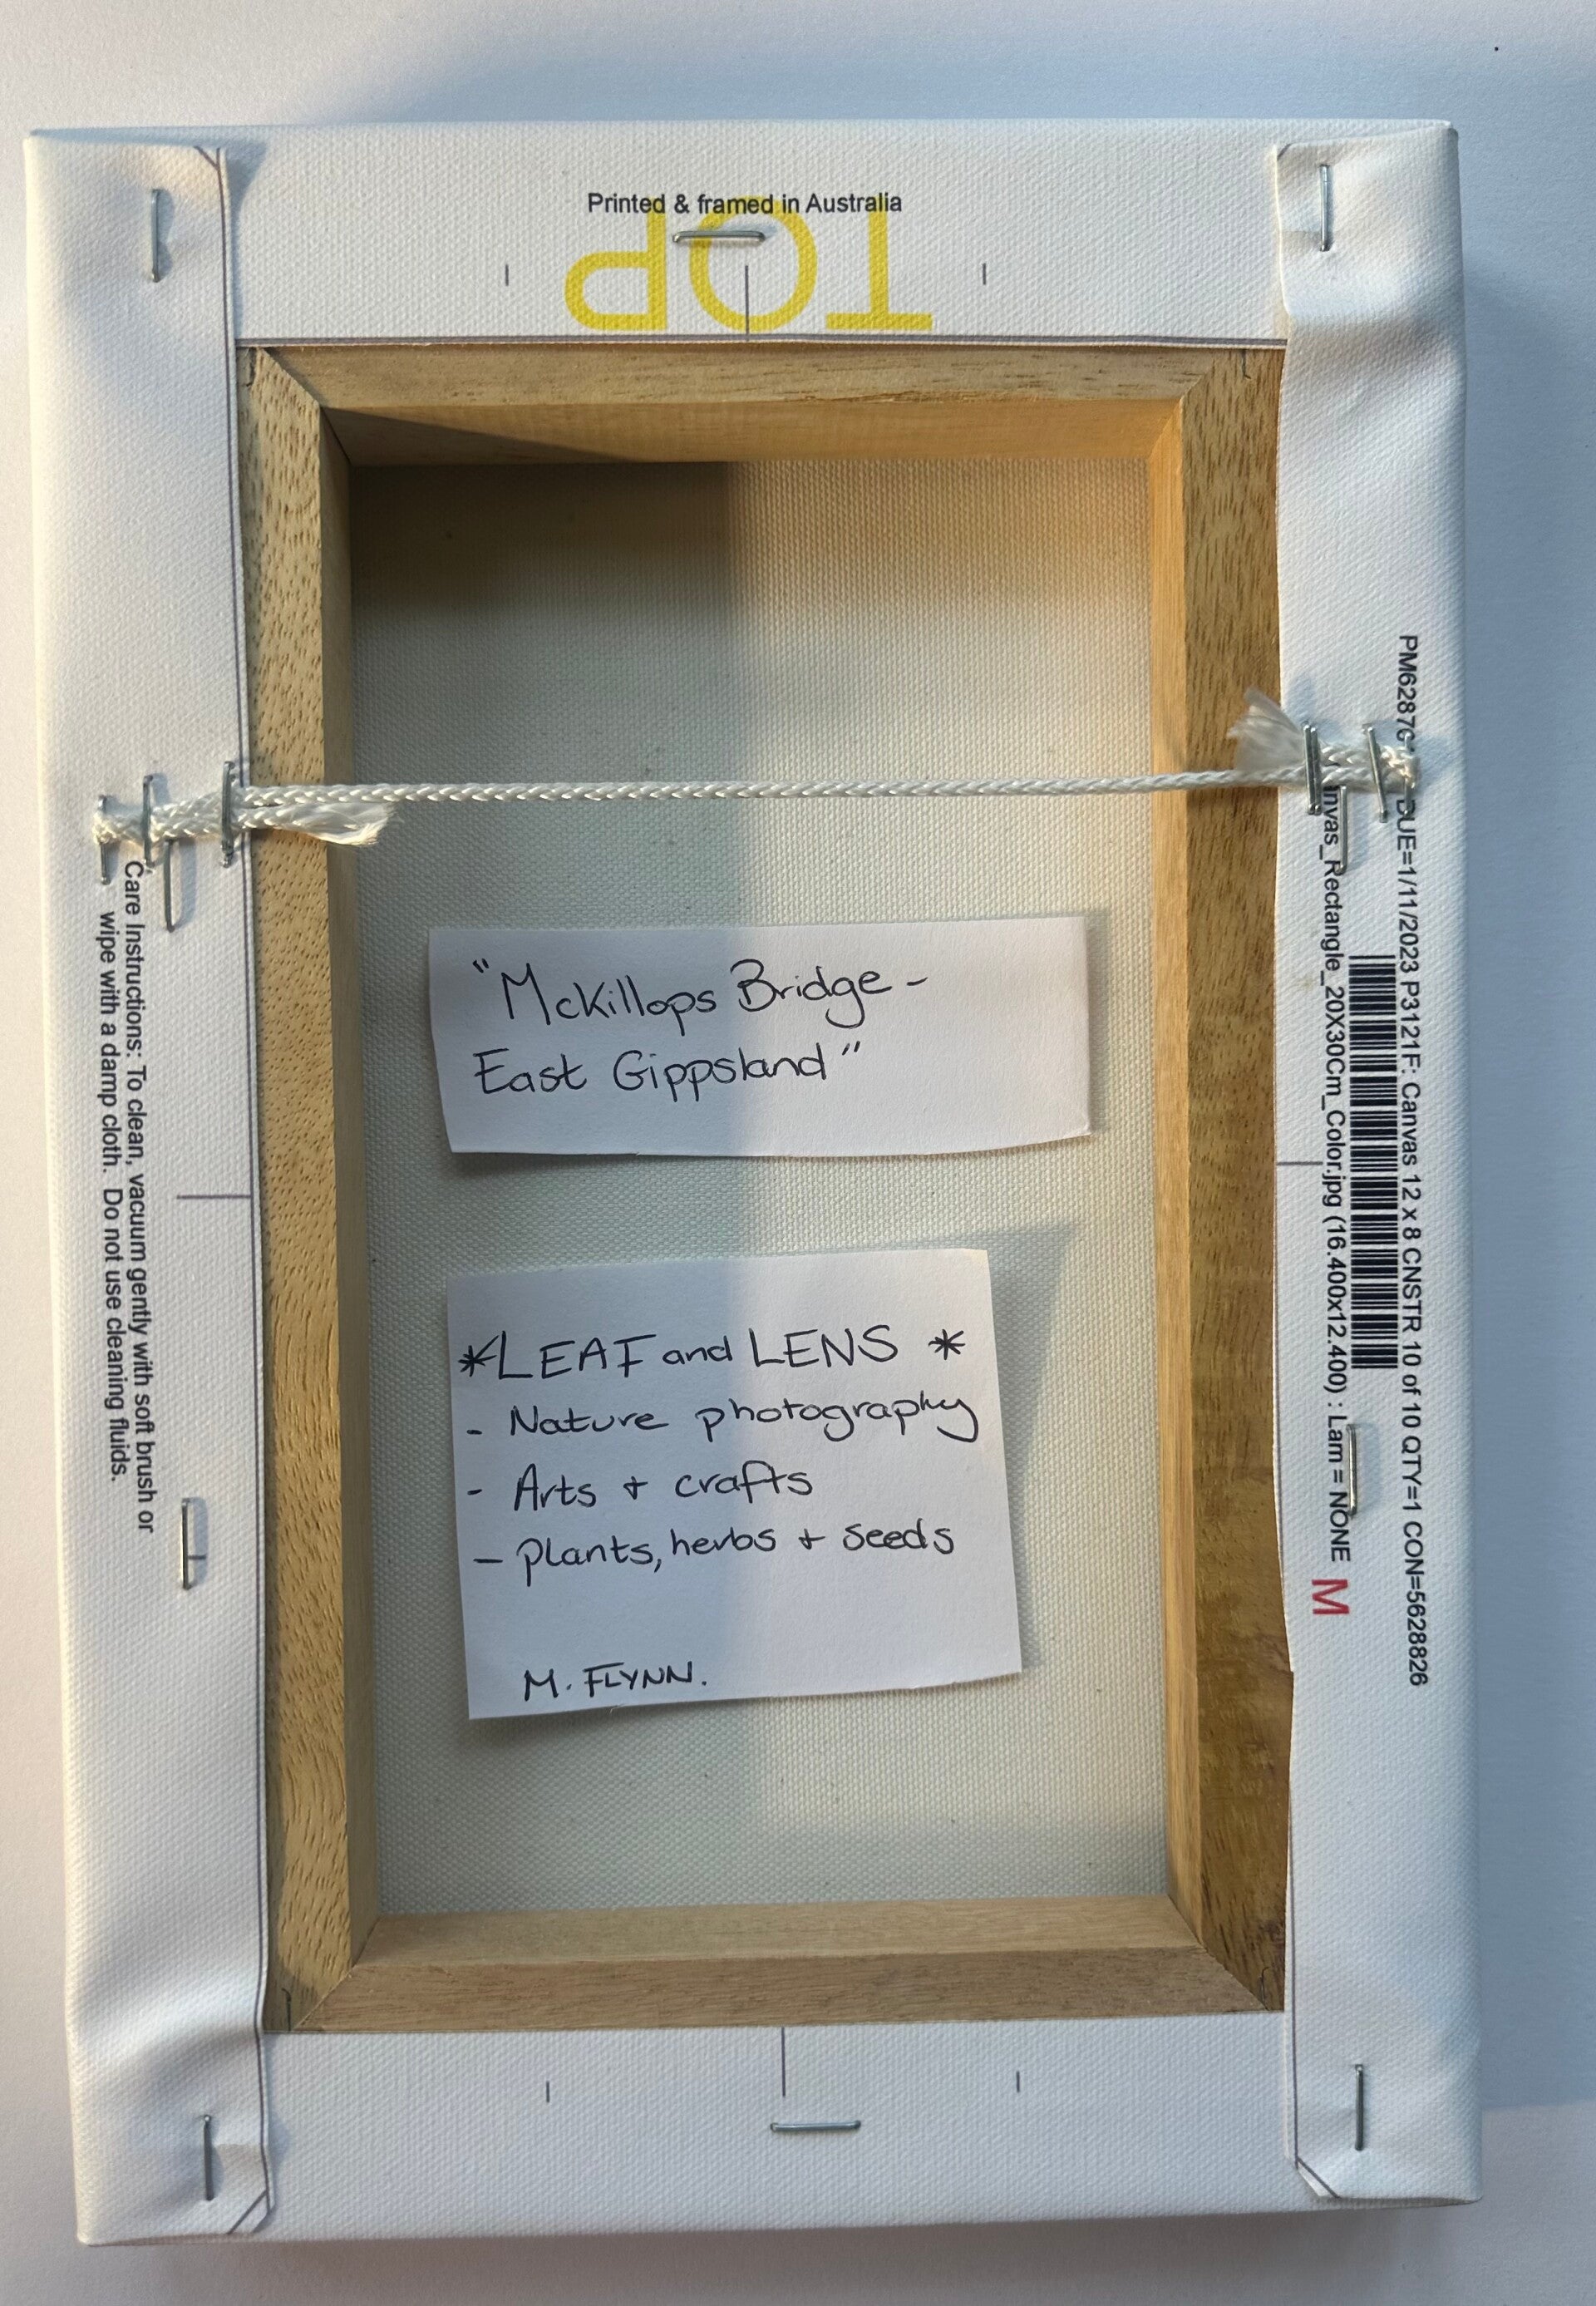 Printed & framed in Australia
TOP
"McKillops Bridge -
East Gippsland"
*LEAF and LENS *
- Nature photography
- Arts + crafts
- Plants, herbs + seeds
M. FLYNN.
Care Instructions: To clean, vacuum gently with soft brush or
wipe with a damp cloth. Do not use cleaning fluids.
DUE=1/11/2023 P3121F: Canvas 12 x 8 CNSTR 10 of 10 QTY=1 CON=5628826
Rectangle_20X30Cm_Color.jpg (16.400x12.400) : Lam = NONE M